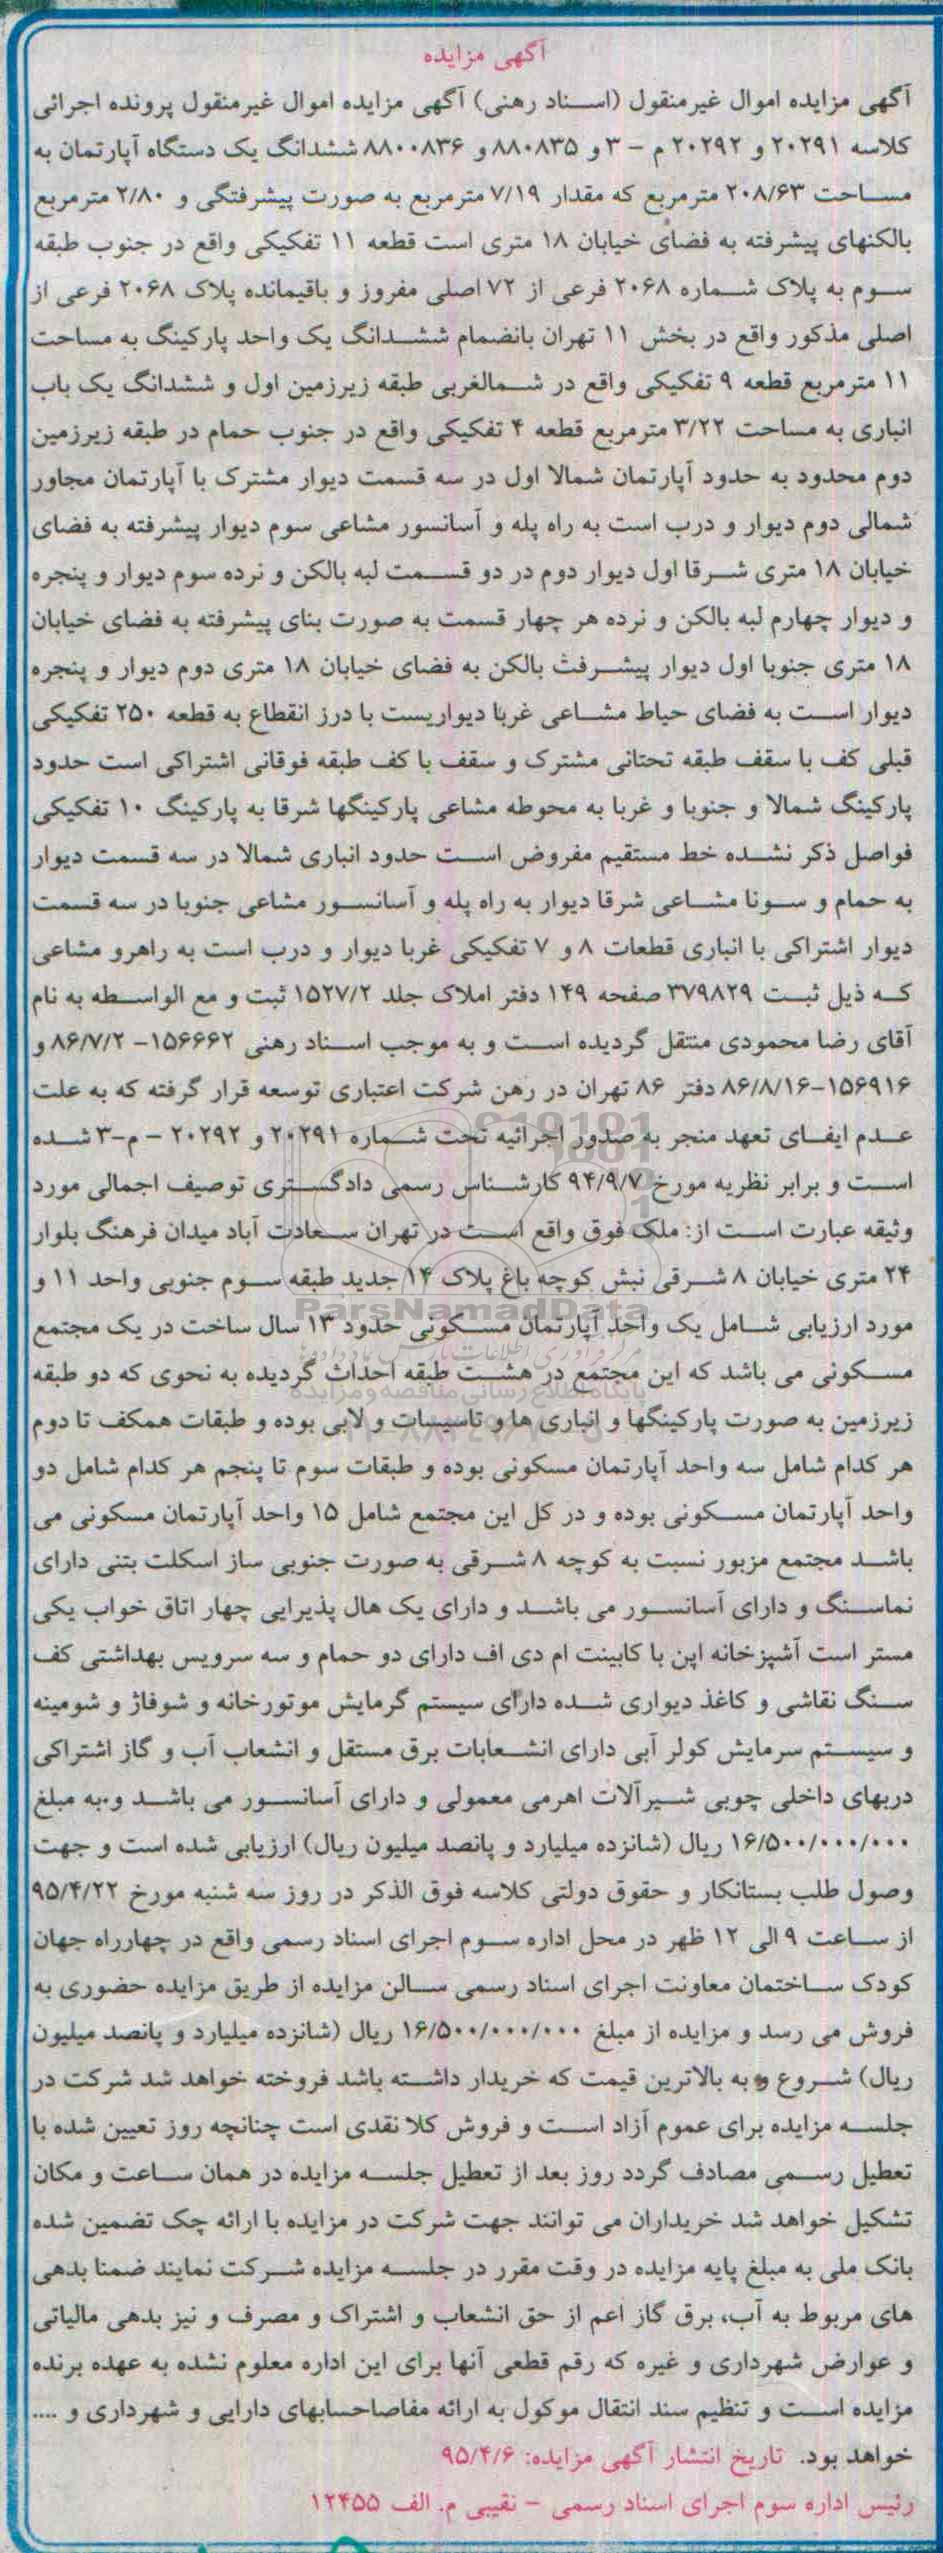 آگهی مزایده
آگهی مزایده اموال غیرمنقول (اسناد رهنی) آگهی مزایده اموال غیرمنقول پرونده اجرائی
کلاسه ۲۰۲۹۱ و ۲۰۲۹۲ م - ۳ و ۸۸۰۸۳۵ و ۸۸۰۰۸۳۶ ششدانگ یک دستگاه آپارتمان به
مساحت ۲۰۸/۶۳ مترمربع که مقدار ۷/۱۹ مترمربع به صورت پیشرفتگی و ۲/۸۰ مترمربع
بالکنهای پیشرفته به فضای خیابان ۱۸ متری است قطعه ۱۱ تفکیکی واقع در جنوب طبقه
سوم به پلاک شماره ۲۰۶۸ فرعی از ۷۲ اصلی مفروز و باقیمانده پلاک ۲۰۶۸ فرعی از
اصلی مذکور واقع در بخش ۱۱ تهران بانضمام ششدانگ یک واحد پارکینگ به مساحت
۱۱ مترمربع قطعه ۹ تفکیکی واقع در شمالغربی طبقه زیرزمین اول و ششدانگ یک باب
انباری به مساحت ۳/۲۲ مترمربع قطعه ۴ تفکیکی واقع در جنوب حمام در طبقه زیرزمین
دوم محدود به حدود آپارتمان شمالا اول در سه قسمت دیوار مشترک با آپارتمان مجاور
شمالی دوم دیوار و درب است به راه پله و آسانسور مشاعی سوم دیوار پیشرفته به فضای
خیابان ۱۸ متری شرقا اول دیوار دوم در دو قسمت لبه بالکن و نرده سوم دیوار و پنجره
و دیوار چهارم لبه بالکن و نرده هر چهار قسمت به صورت بنای پیشرفته به فضای خیابان
۱۸ متری جنوبا اول دیوار پیشرفت بالکن به فضای خیابان ۱۸ متری دوم دیوار و پنجره
دیوار است به فضای حیاط مشاعی غربا دیواریست با درز انقطاع به قطعه ۲۵۰ تفکیکی
قبلی کف با سقف طبقه تحتانی مشترک و سقف با کف طبقه فوقانی اشتراکی است حدود
پارکینگ شمالا و جنوبا و غربا به محوطه مشاعی پارکینگها شرقا به پارکینگ ۱۰ تفکیکی
فواصل ذکر نشده خط مستقیم مفروض است حدود انباری شمالا در سه قسمت دیوار
به حمام و سونا مشاعی شرقا دیوار به راه پله و آسانسور مشاعی جنوبا در سه قسمت
دیوار اشتراکی با انباری قطعات ۸ و ۷ تفکیکی غربا دیوار و درب است به راهرو مشاعی
که ذیل ثبت ۳۷۹۸۲۹ صفحه ۱۴۹ دفتر املاک جلد ۱۵۲۷/۲ ثبت و مع الواسطه به نام
آقای رضا محمودی منتقل گردیده است و به موجب اسناد رهنی ۱۵۶۶۶۲- ۸۶/۷/۲ و
۱۵۶۹۱۶-۸۶/۸/۱۶ دفتر ۸۶ تهران در رهن شرکت اعتباری توسعه قرار گرفته که به علت
عدم ایفای تعهد منجر به صدور اجرائیه تحت شماره ۲۰۲۹۱ و ۲۰۲۹۲ - م-۳ شده
است و برابر نظریه مورخ ۹۴/۹/۷ کارشناس رسمی دادگستری توصیف اجمالی مورد
وثیقه عبارت است از: ملک فوق واقع است در تهران سعادت آباد میدان فرهنگ بلوار
۲۴ متری خیابان ۸ شرقی نبش کوچه باغ پلاک ۱۴ جدید طبقه سوم جنوبی واحد ۱۱ و
مورد ارزیابی شامل یک واحد آپارتمان مسکونی حدود ۱۳ سال ساخت در یک مجتمع
مسکونی می باشد که این مجتمع در هشت طبقه احداث گردیده به نحوی که دو طبقه
زیرزمین به صورت پارکینگها و انباری ها و تاسیسات و لابی بوده و طبقات همکف تا دوم
هر کدام شامل سه واحد آپارتمان مسکونی بوده و طبقات سوم تا پنجم هر کدام شامل دو
واحد آپارتمان مسکونی بوده و در کل این مجتمع شامل ۱۵ واحد آپارتمان مسکونی می
باشد مجتمع مزبور نسبت به کوچه ۸ شرقی به صورت جنوبی ساز اسکلت بتنی دارای
نماسنگ و دارای آسانسور می باشد و دارای یک هال پذیرایی چهار اتاق خواب یکی
مستر است آشپزخانه اپن با کابینت ام دی اف دارای دو حمام و سه سرویس بهداشتی کف
سنگ نقاشی و کاغذ دیواری شده دارای سیستم گرمایش موتورخانه و شوفاژ و شومینه
و سیستم سرمایش کولر آبی دارای انشعابات برق مستقل و انشعاب آب و گاز اشتراکی
دربهای داخلی چوبی شیرآلات اهرمی معمولی و دارای آسانسور می باشد و به مبلغ
۱۶/۵۰۰/۰۰۰/۰۰۰ ریال (شانزده میلیارد و پانصد میلیون ریال) ارزیابی شده است و جهت
وصول طلب بستانکار و حقوق دولتی کلاسه فوق الذکر در روز سه شنبه مورخ ۹۵/۴/۲۲
از ساعت ۹ الی ۱۲ ظهر در محل اداره سوم اجرای اسناد رسمی واقع در چهارراه جهان
کودک ساختمان معاونت اجرای اسناد رسمی سالن مزایده از طریق مزایده حضوری به
فروش می رسد و مزایده از مبلغ ۱۶/۵۰۰/۰۰۰/۰۰۰ ریال (شانزده میلیارد و پانصد میلیون
ریال) شروع و به بالاترین قیمت که خریدار داشته باشد فروخته خواهد شد شرکت در
جلسه مزایده برای عموم آزاد است و فروش کلا نقدی است چنانچه روز تعیین شده با
تعطیل رسمی مصادف گردد روز بعد از تعطیل جلسه مزایده در همان ساعت و مکان
تشکیل خواهد شد خریداران می توانند جهت شرکت در مزایده با ارائه چک تضمین شده
بانک ملی به مبلغ پایه مزایده در وقت مقرر در جلسه مزایده شرکت نمایند ضمنا بدهی
های مربوط به آب، برق گاز اعم از حق انشعاب و اشتراک و مصرف و نیز بدهی مالیاتی
و عوارض شهرداری و غیره که رقم قطعی آنها برای این اداره معلوم نشده به عهده برنده
مزایده است و تنظیم سند انتقال موکول به ارائه مفاصاحسابهای دارایی و شهرداری و ....
خواهد بود. تاریخ انتشار آگهی مزایده: ۹۵/۴/۶
رئیس اداره سوم اجرای اسناد رسمی - نقیبی م. الف ۱۲۴۵۵
ParsNamadData
پایگاه اطلاع رسانی مناقصه و مزایده